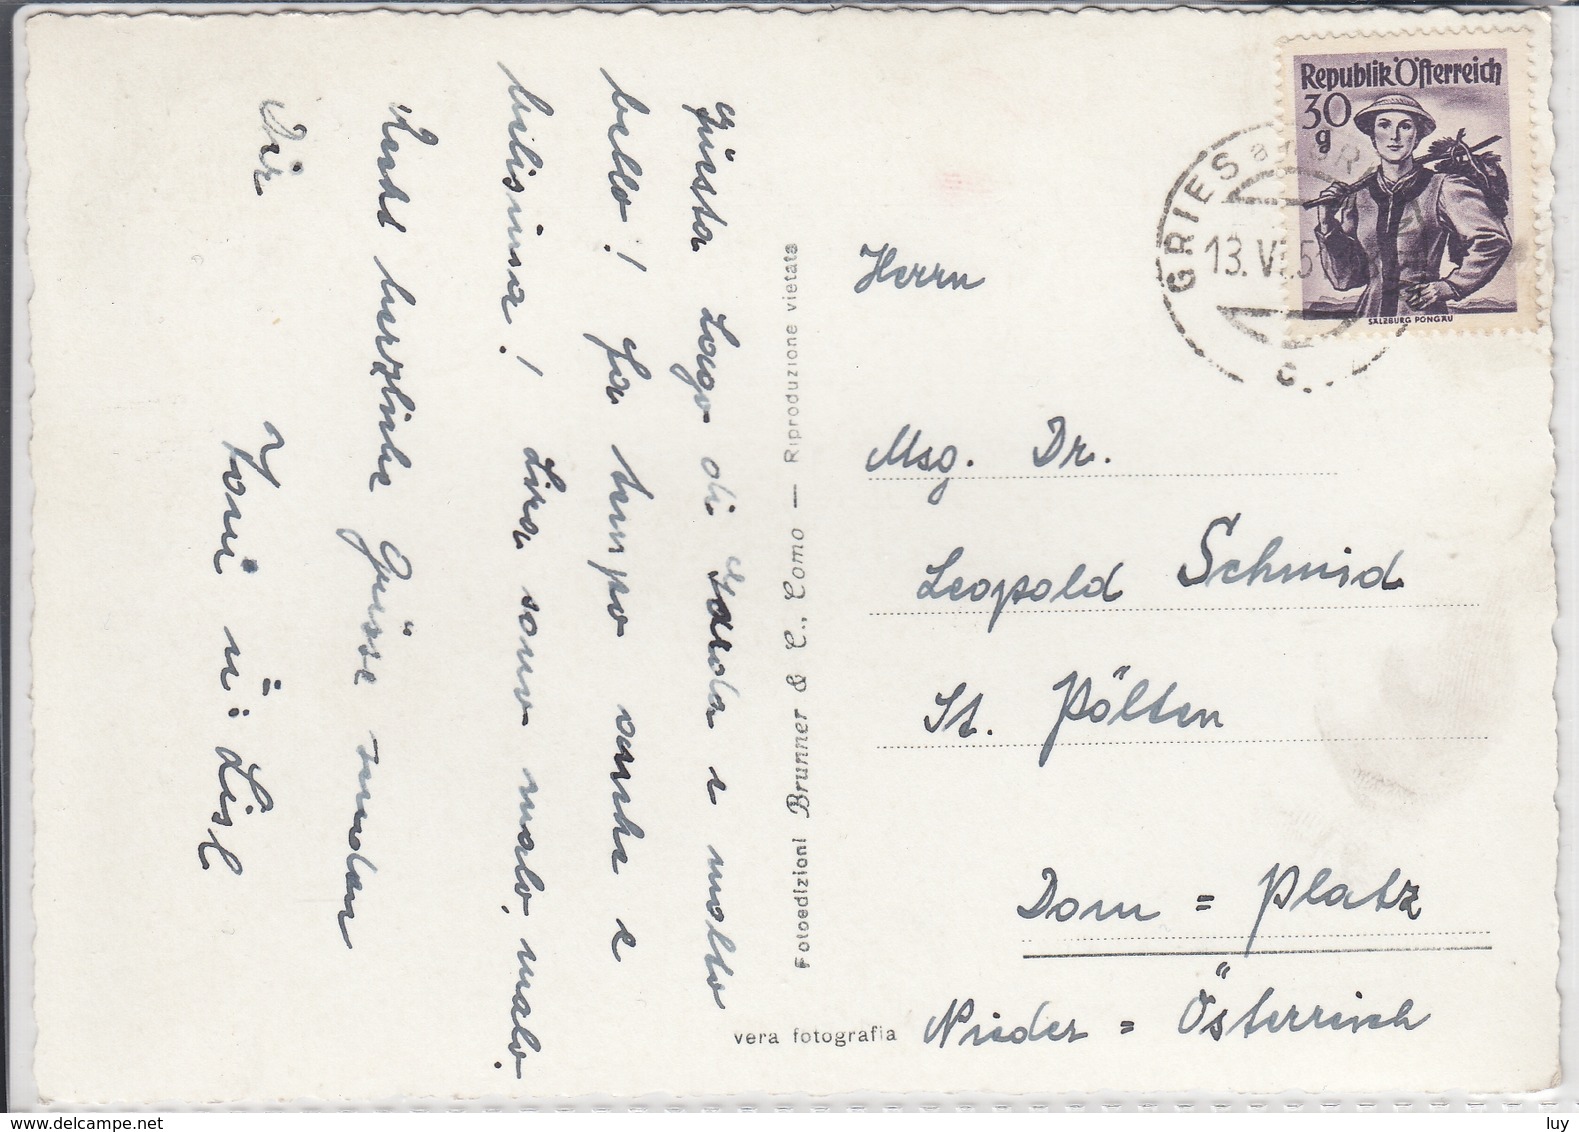 Giusta Lago di Garda e molto
bello! Fa tempo anche e
bilissima! Lira sono malo, malo.
Recht herzliche Grüsse senden
Dir
Toni u: Lisl
Fotoedizioni Brunner & C., Como — Riproduzione vietata
vera fotografia
Republik Österreich
30
g
SALZBURG PONGAU
GRIES a.
13. V
c.
Herrn
Msg. Dr.
Leopold Schmid
St. Pölten
Dom = Platz
Nieder = Österreich
www.delcampe.net
luy